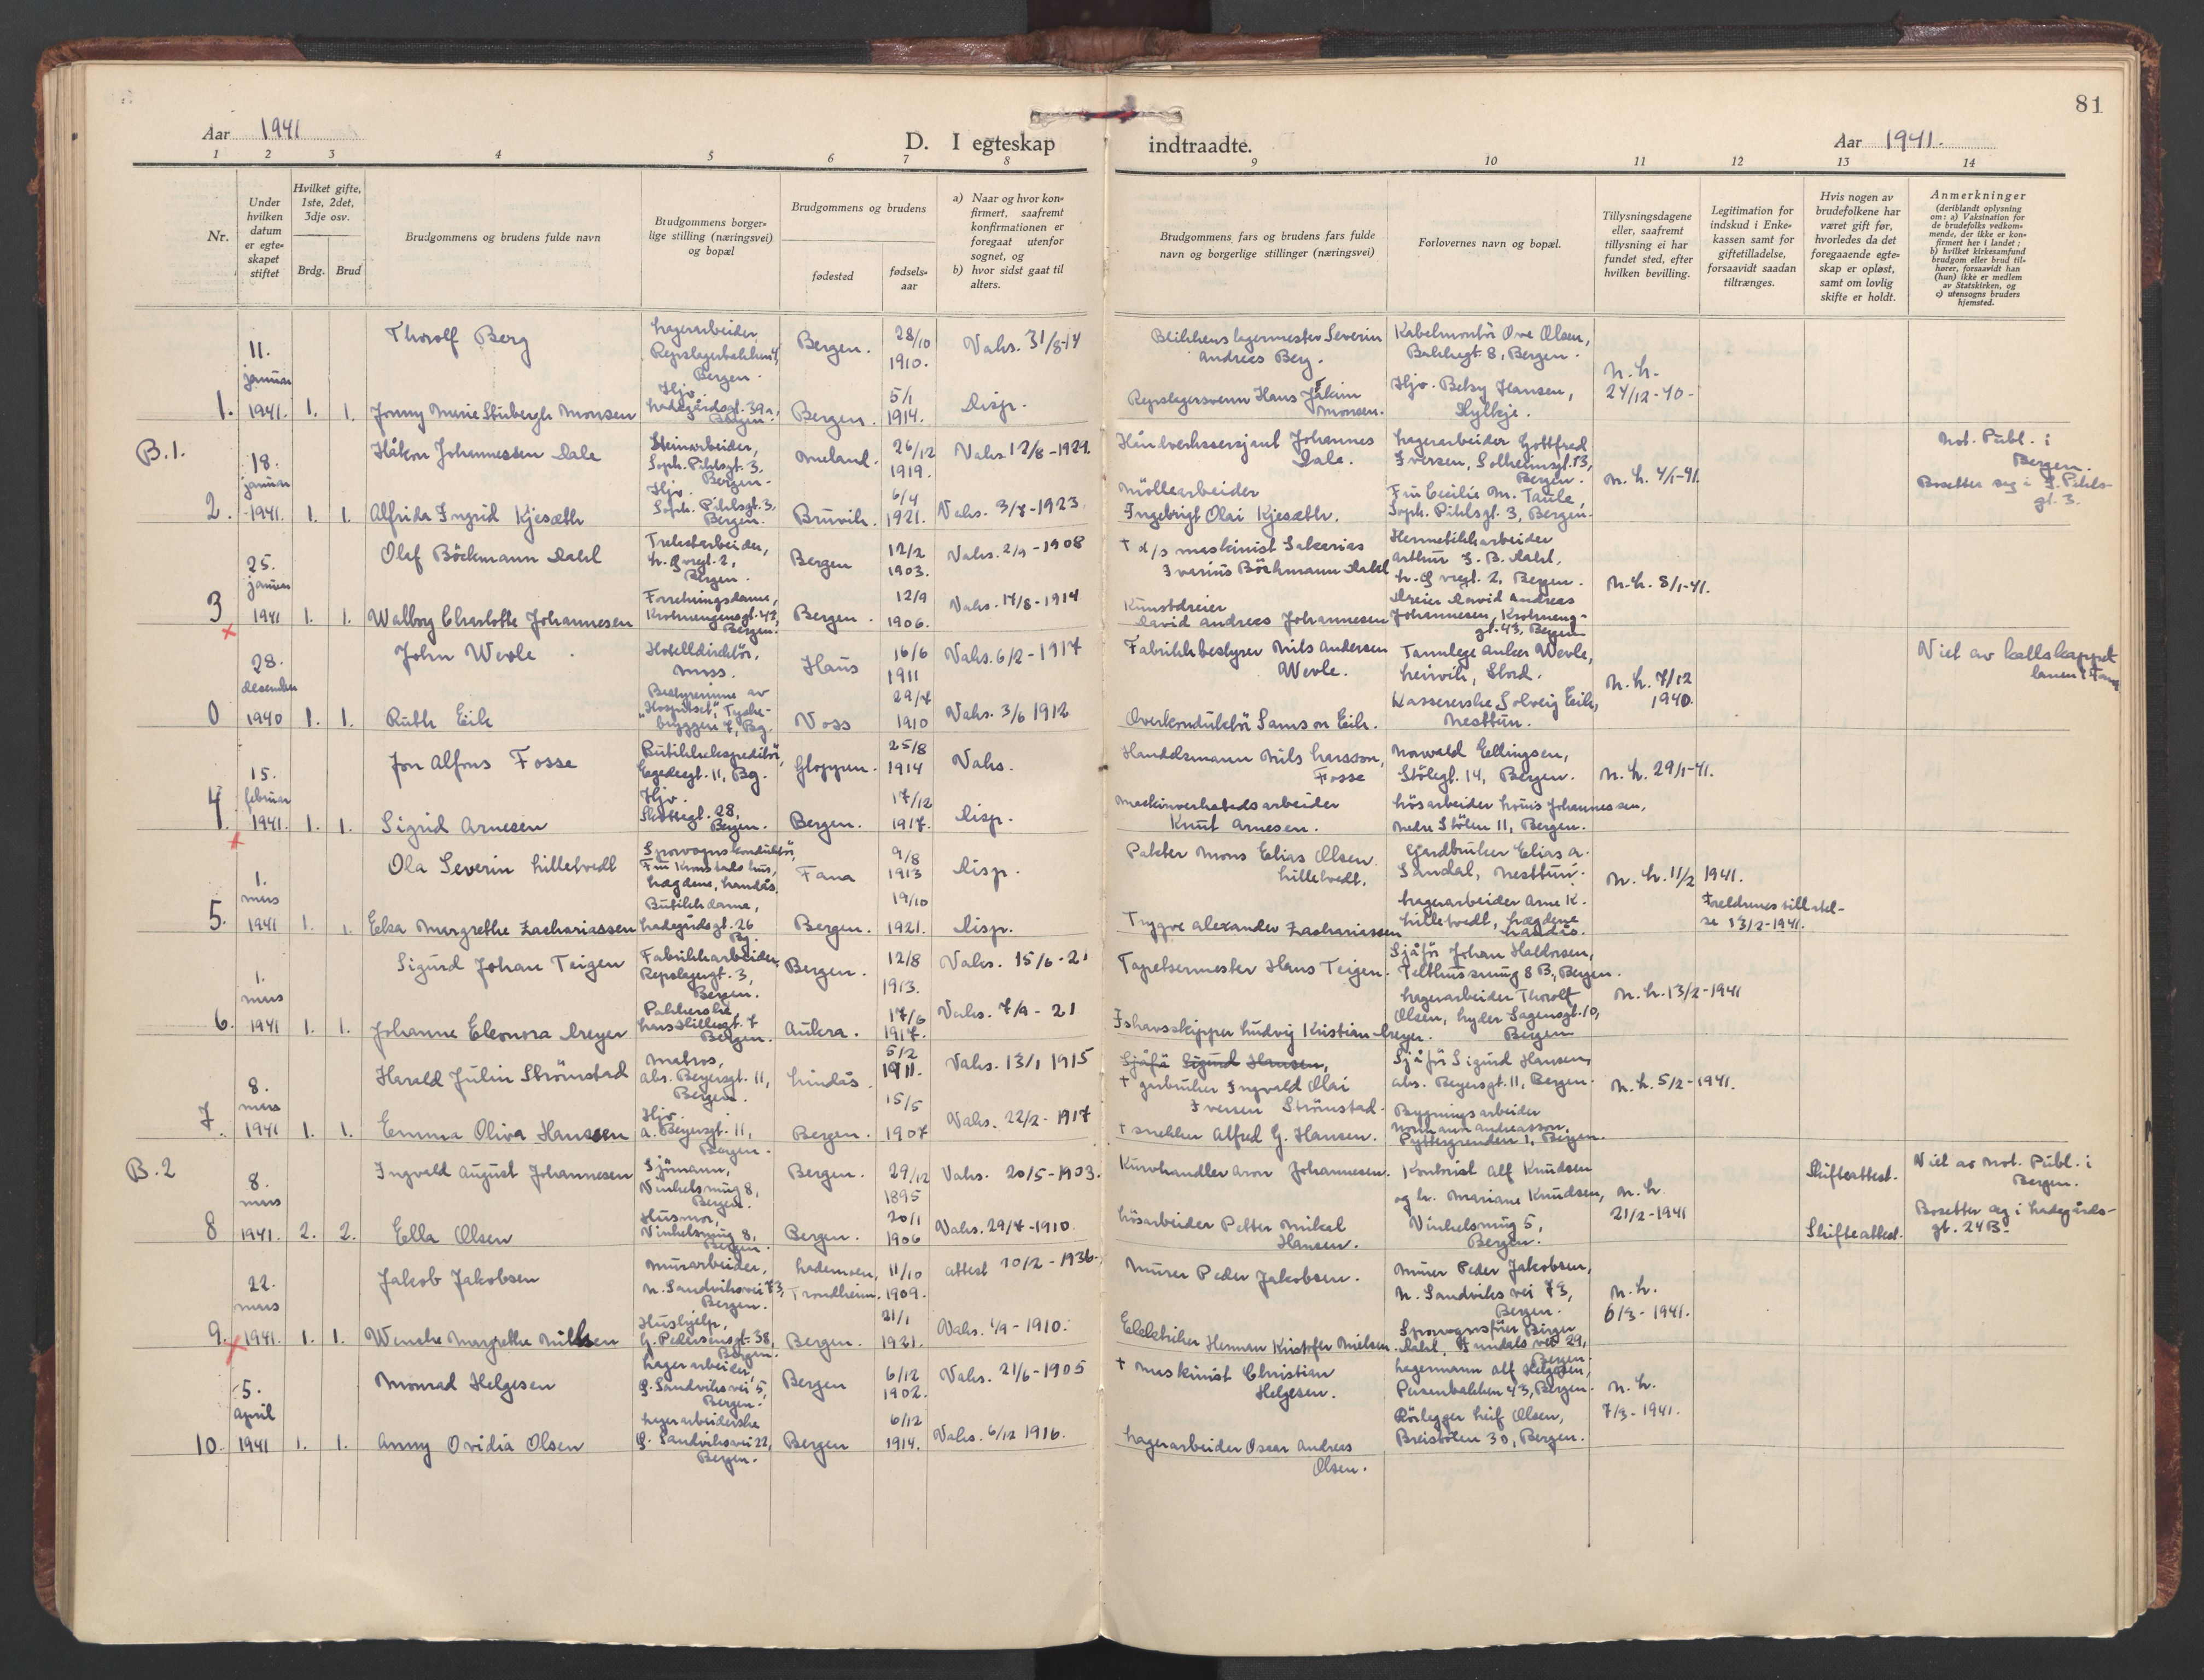 81
Aar 1941
D. I egteskap indtraadte.
Aar 1941.
1 2 3 4 5 6 7 8 9 10 11 12 13 14
Nr.
Under
hvilken
datum
er egte-
skapet
stiftet
Hvilket gifte,
1ste, 2det,
3dje osv.
Brdg. Brud
Brudgommens og brudens fulde navn
Brudgommens borger-
lige stilling (næringsvei)
og bopæl
Brudgommens og brudens
fødested
fødsels-
aar
a) Naar og hvor kon-
firmert, saafremt
konfirmationen er
foregaat utenfor
sognet, og
b) hvor sidst gaat til
alters.
Brudgommens fars og brudens fars fulde
navn og borgerlige stillinger (næringsvei)
Forlovernes navn og bopæl.
Tillysningsdagene
eller, saafremt
tillysning ei har
fundet sted, efter
hvilken bevilling.
Legitimation for
indskud i Enke-
kassen samt for
giftetilladelse,
forsaavidt saadan
tiltrænges.
Hvis nogen av
brudefolkene har
været gift før,
hvorledes da det
foregaaende egte-
skap er opløst,
samt om lovlig
skifte er holdt.
Anmerkninger
(deriblandt oplysning
om: a) Vaksination for
de brudefolks vedkom-
mende, der ikke er kon-
firmert her i landet;
b) hvilket kirkesamfund
brudgom eller brud til-
hører, forsaavidt han
(hun) ikke er medlem
av Statskirken, og
c) utensogns bruders
hjemsted.
1.
11.
januar
1941. 1. 1.
Thorolf Berg
Lagerarbeider,
Bergen.
Bergen.
28/10
1910.
Vaks. 31/8-14
Blikkenslagermester Severin
Andreas Berg.
Kabelmontör Ove Olsen,
Bakkegt. 8, Bergen.
N.h.
24/12-40-
Jonny Marie Stubergh Monsen
Hjv.
Ladegårdsgt. 39a,
Bergen.
Bergen.
5/1
1914.
Disp.
Repslagersvenn Hans Jakim
Monsen.
Hjv. Betsy Hansen,
Hylkje.
B.1.
2.
18.
januar
1941. 1. 1.
Håkon Johannessen Dale
Steinarbeider,
Soph. Pihlsgt. 3.
Bergen.
Meland.
26/12
1919.
Vaks. 12/8-1921.
Håndverkssersjant Johannes
Dale.
Lagerarbeider Gottfred
Iversen, Solheimsgt. 13,
Bergen.
N.h. 4/1-41
Not. Publ. i
Bergen.
Bosetter seg i S. Pihls-
gt. 3.
Alfrida Ingrid Kjesæth
Hjv.
Soph. Pihlsgt. 3,
Bergen.
Bruvik.
6/4
1921.
Vaks. 3/7-1923.
Möllearbeider
Ingebrigt Olai Kjesæth.
Fru Cecilie M. Taule,
Soph. Pihlsgt. 3, Bergen.
3
25.
januar
1941 1. 1.
Olaf Böckmann Dahl
Bergen.
Bergen
12/2
1903.
Vaks. 2/9-1908
† d/s maskinist Sakarias
Ivarius Böckmann Dahl
Hermetikkarbeider
Arthur S. B. Dahl,
Bergen.
N.h. 8/1-41.
Walborg Charlotte Johannesen
Forretningsdame,
Krohnengensgt. 42,
Bergen.
Bergen.
12/9
1906.
Vaks. 17/8-1914
Kunstdreier
David Andreas Johannesen
Dreier David Andreas
Johannesen, Krohneng-
gt. 43, Bergen
0
28.
desember
1940 1. 1.
John Wevle
Hotelldirektör,
Moss.
Haus
16/6
1911
Vaks. 6/2-1917
Fabrikkbestyrer Nils Andersen
Wevle.
Tannlege Anker Wevle,
Leirvik, Stord.
N.h. 7/12
1940.
Viet av kallskappel
lanen i Fana
Ruth Eik
Bestyrerinne av
"Hospitset", Tyske-
bryggen 7, Bg.
Voss
29/7
1910
Vaks. 3/6 1912
Overkonduktör Samson Eik.
Kassererske Solveig Eik,
Nesttun.
4
15.
februar
1941. 1. 1.
Jon Alfons Fosse
Butikkekspeditör,
Egedesgt. 11, Bg.
Gloppen.
25/8
1914
Vaks.
Handelsmann Nils Larsson,
Fosse
Norvald Ellingsen,
Stölegt. 14, Bergen.
N.h. 29/1-41.
Sigrid Arnesen
Hjv.
Skottegt. 28,
Bergen.
Bergen.
17/12
1917.
Disp.
Maskinverkstedsarbeider
Knut Arnesen.
Lösarbeider Louis Johannessen,
Nedre Stölen 11, Bergen.
5.
1.
mars
1941 1. 1.
Ola Severin Lilletvedt
Sporvognskonduktör,
Fru Kronstads hus,
Lægdene, Landås.
Fana
9/8
1913
Disp.
Pakker Mons Elias Olsen
Lilletvedt.
Gårdbruker Elias A.
Sandal, Nesttun.
N.h. 11/2 1941.
Foreldrenes tillatel-
se 13/2-1941.
Elsa Margrethe Zachariassen
Butikkdame,
Ladegårdsgt. 26
Bg.
Bergen.
19/10
1921.
Disp.
Trygve Alexander Zachariassen
Lagerarbeider Arne K.
Lilletvedt, Lægdene
Landås.
6.
1.
mars
1941 1. 1.
Sigurd Johan Teigen
Fabrikkarbeider,
Repslagergt. 3,
Bergen.
Bergen.
12/8
1913.
Vaks. 15/6-21
Tapetsermester Hans Teigen.
Sjåför Johan Haldorsen,
Telthussmug 8 B, Bergen.
N.h. 13/2-1941
Johanne Eleonora Dreyer
Pakkerske,
Lars Hillesgt. 7
Bergen.
Aukra.
17/6
1917.
Vaks. 7/9-21
Ishavsskipper Ludvig Kristian Dreyer.
Lagerarbeider Thorolf
Olsen, Lyder Sagensgt. 10,
Bergen
7.
8.
mars
1941 1. 1.
Harald Julin Strömstad
Matros,
Abs. Beyersgt. 11,
Bergen.
Lindås.
5/2
1911.
Vaks. 13/1 1915
Sjåför Sigurd Hansen,
† gårbruker Ingvald Olai
Iversen Strömstad.
Sjåför Sigurd Hansen,
Abs. Beyersgt. 11, Bergen.
N.h. 5/2-1941.
Emma Oliva Hanssen
Hjv.
A. Beyersgt. 11,
Bergen.
Bergen.
15/5
1907
Vaks. 22/2-1917
† snekker Alfred G. Hansen.
Bygningsarbeider
Normann Andreasson,
Pyttergrenden 1, Bergen.
B.2
8
8.
mars
1941. 2. 2.
Ingvald August Johannesen
Sjömann,
Vinkelsmug 8,
Bergen.
Bergen.
29/12
1895
Vaks. 20/5-1903.
Kurvhandler Aron Johannesen.
Kontorist Alf Knudsen
og h. Mariane Knudsen,
N.h.
21/2-1941
Skifteattest.
Viet av Not. Publ. i
Bergen.
Ella Olsen
Husmor,
Vinkelsmug 8,
Bergen.
Bergen.
20/1
1906
Vaks. 29/7-1910.
Lösarbeider Petter Mikal
Hansen.
Vinkelsmug 5,
Bergen.
Skifteattest.
Bosetter seg i Ladegårds-
gt. 24B.
9.
22.
mars
1941. 1. 1.
Jakob Jakobsen
Murarbeider,
N. Sandviksvei 73,
Bergen.
Lademoen,
Trondheim.
11/10
1909.
Attest 10/2-1936.
Murer Peder Jakobsen.
Murer Peder Jakobsen,
N. Sandviksvei 73,
Bergen.
N.h.
6/3-1941.
Wenche Margrethe Nielsen
Hushjelp,
G. Pedersensgt. 38,
Bergen.
Bergen.
21/1
1921.
Vaks. 1/9-1910.
Elektriker Herman Kristofer Nielsen.
Sporvognsförer Birger
Dahl, vei 29,
Bergen.
10.
5.
April
1941 1. 1.
Monrad Helgesen
Lagerarbeider,
Ö. Sandviksvei 5,
Bergen.
Bergen
6/12
1902.
Vaks. 21/6-1905
† Maskinist Christian
Helgesen.
Lagermann Alf Helgesen,
Persenbakken 43, Bergen.
N.h.
7/3-1941.
Anny Ovidia Olsen
Lagerarbeiderske
Ö. Sandviksvei 22,
Bergen.
Bergen
6/12
1914.
Vaks. 6/12 1916.
Lagerarbeider Oscar Andreas
Olsen.
Rörlegger Leif Olsen,
Breistölen 30, Bergen.